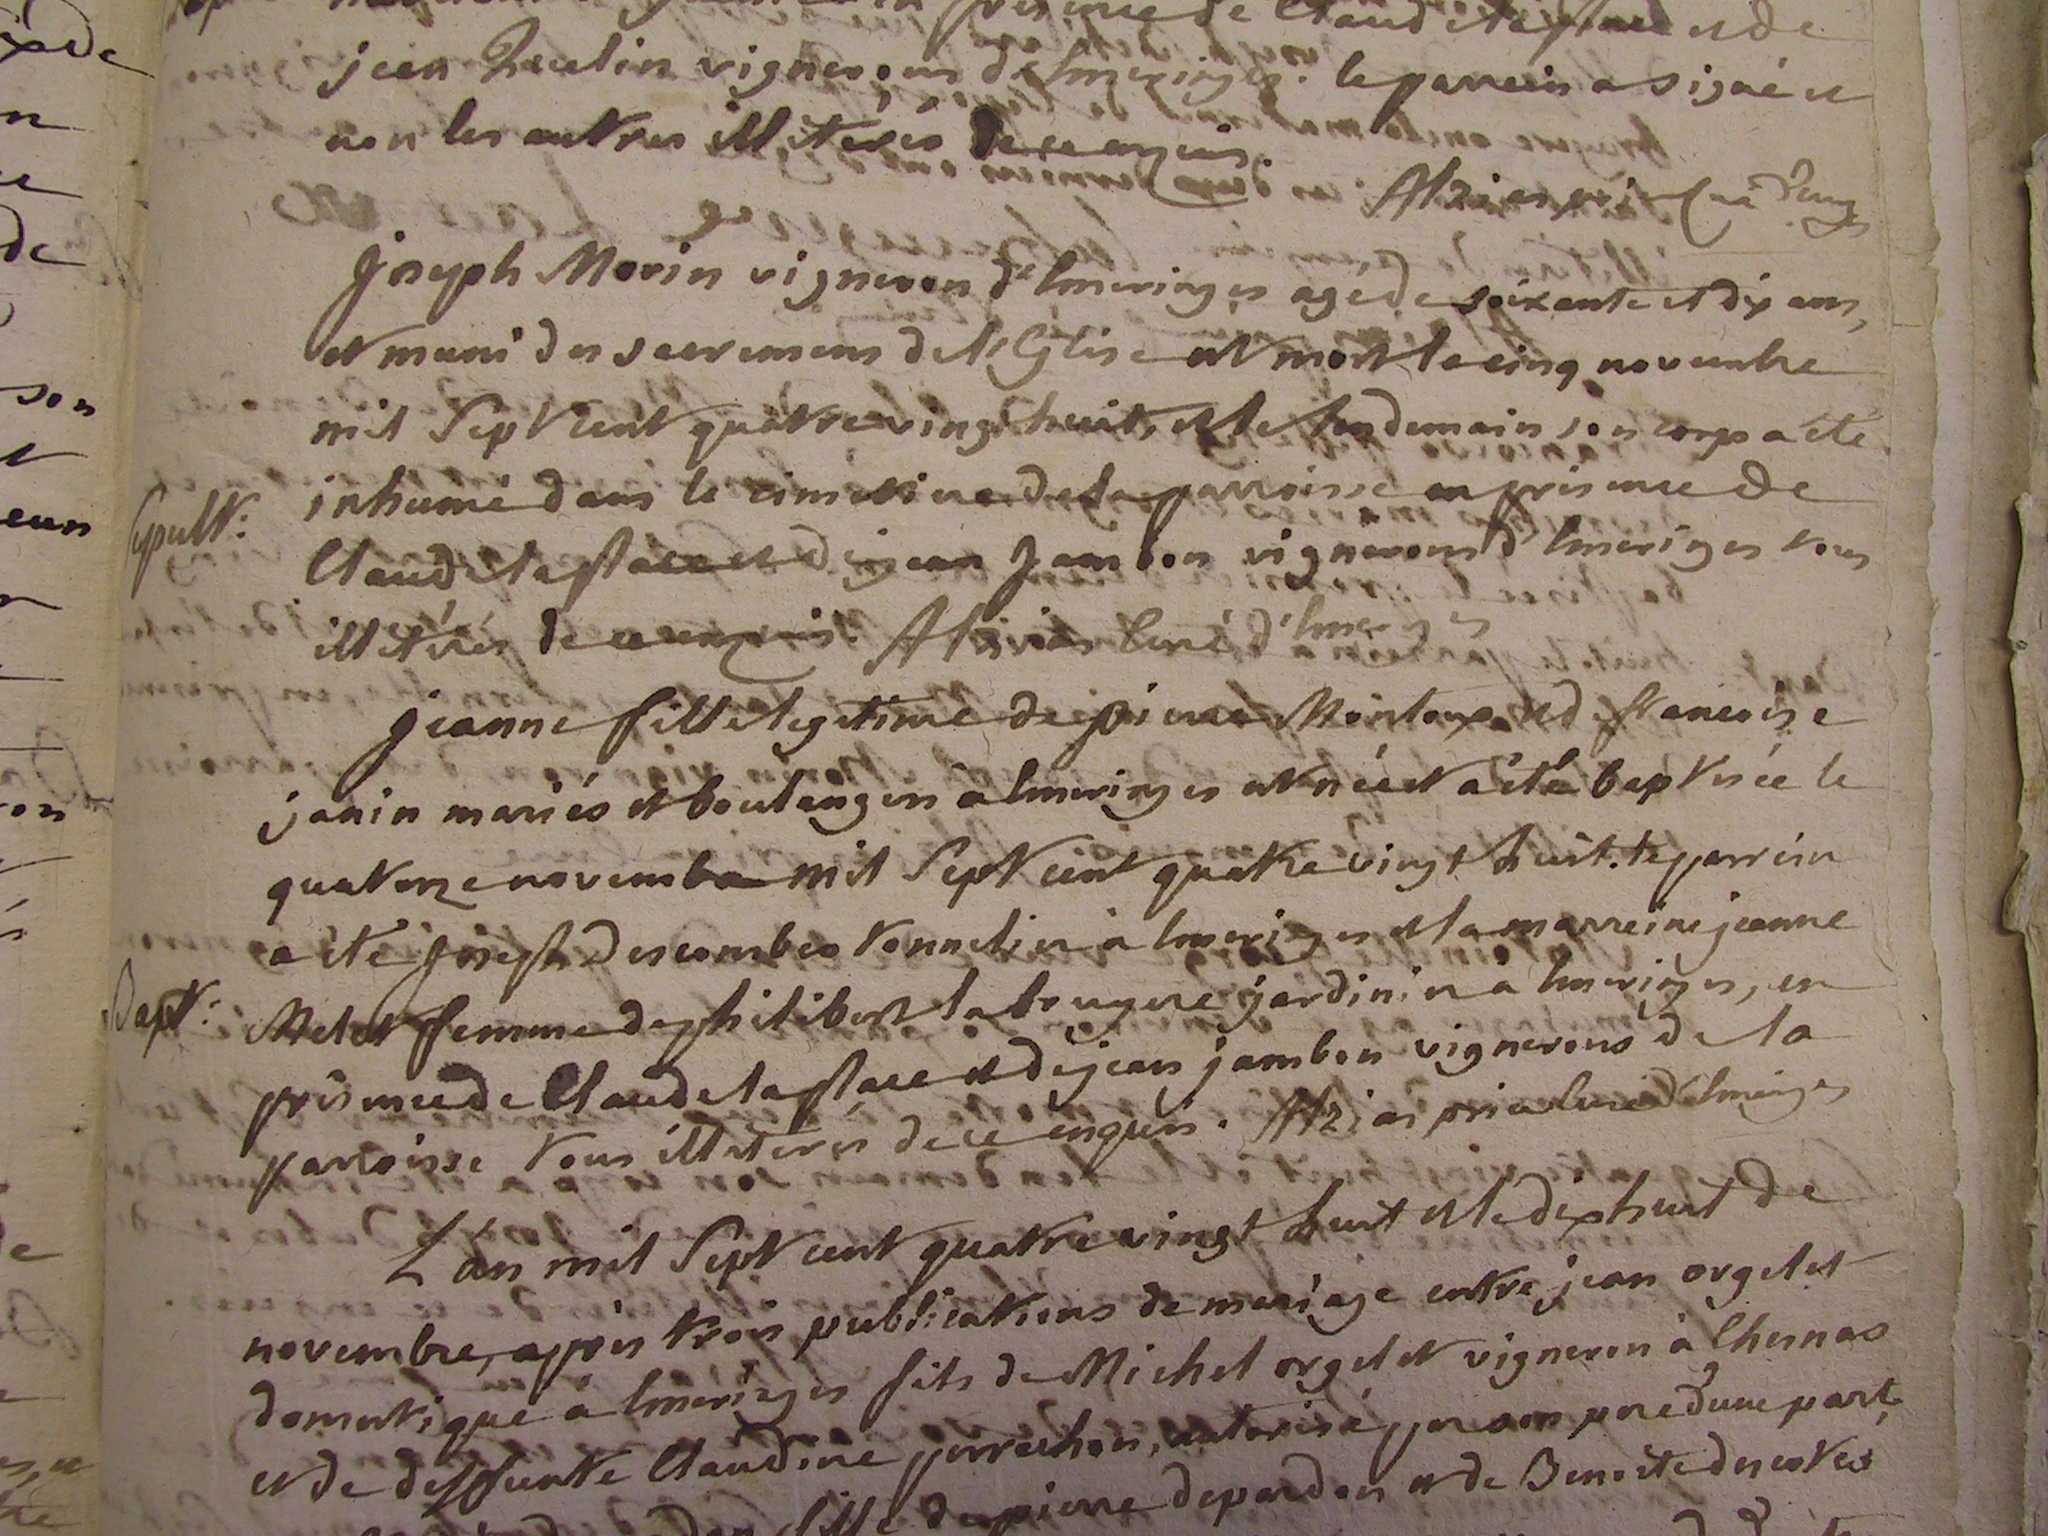 en presence de Claude laplace et de
jean vignerons d'Emeringes. le parrein a signé et
non les autres illiterés de ce enquis.
Alziar prieur Curé d'Emeringes
Joseph Morin vigneron d'Emeringes agé de soixante et dix ans,
et muni des sacremens de l'Eglise est mort le cinq novembre
mil Sept cent quatre vingt huit, et le lendemain son corps a été
inhumé dans le cimetiere de la parroisse en presence de
Sepult.
Claude laplace et de jean Jambon vignerons d'Emeringes tous
illiterés de ce enquis. Alziar Curé d'Emeringes
jeanne fille legitime de pierre Montoux et de francoise
janin mariés et boulangers à Emeringes est née et a été baptisée le
quatorze novembre mil Sept cent quatre vingt huit. le parrein
a été Joseph descombes tonnelier à Emeringes et la marreine jeanne
Bapt.
Melet femme de philibert labruyere jardinier à Emeringes, en
présence de Claude laplace et de jean jambon vignerons de la
parroisse tous illiterés de ce enquis. Alziar prieur Curé d'Emeringes
L'an mil Sept cent quatre vingt huit et le dix huit de
novembre, après trois publications de mariage entre jean orgelet
domestique à Emeringes fils de Michel orgelet vigneron à Chenas
et de deffunte Claudine perrachon, autorisé par son pere d'une part,
fille de pierre depardon et de Benoite descotes